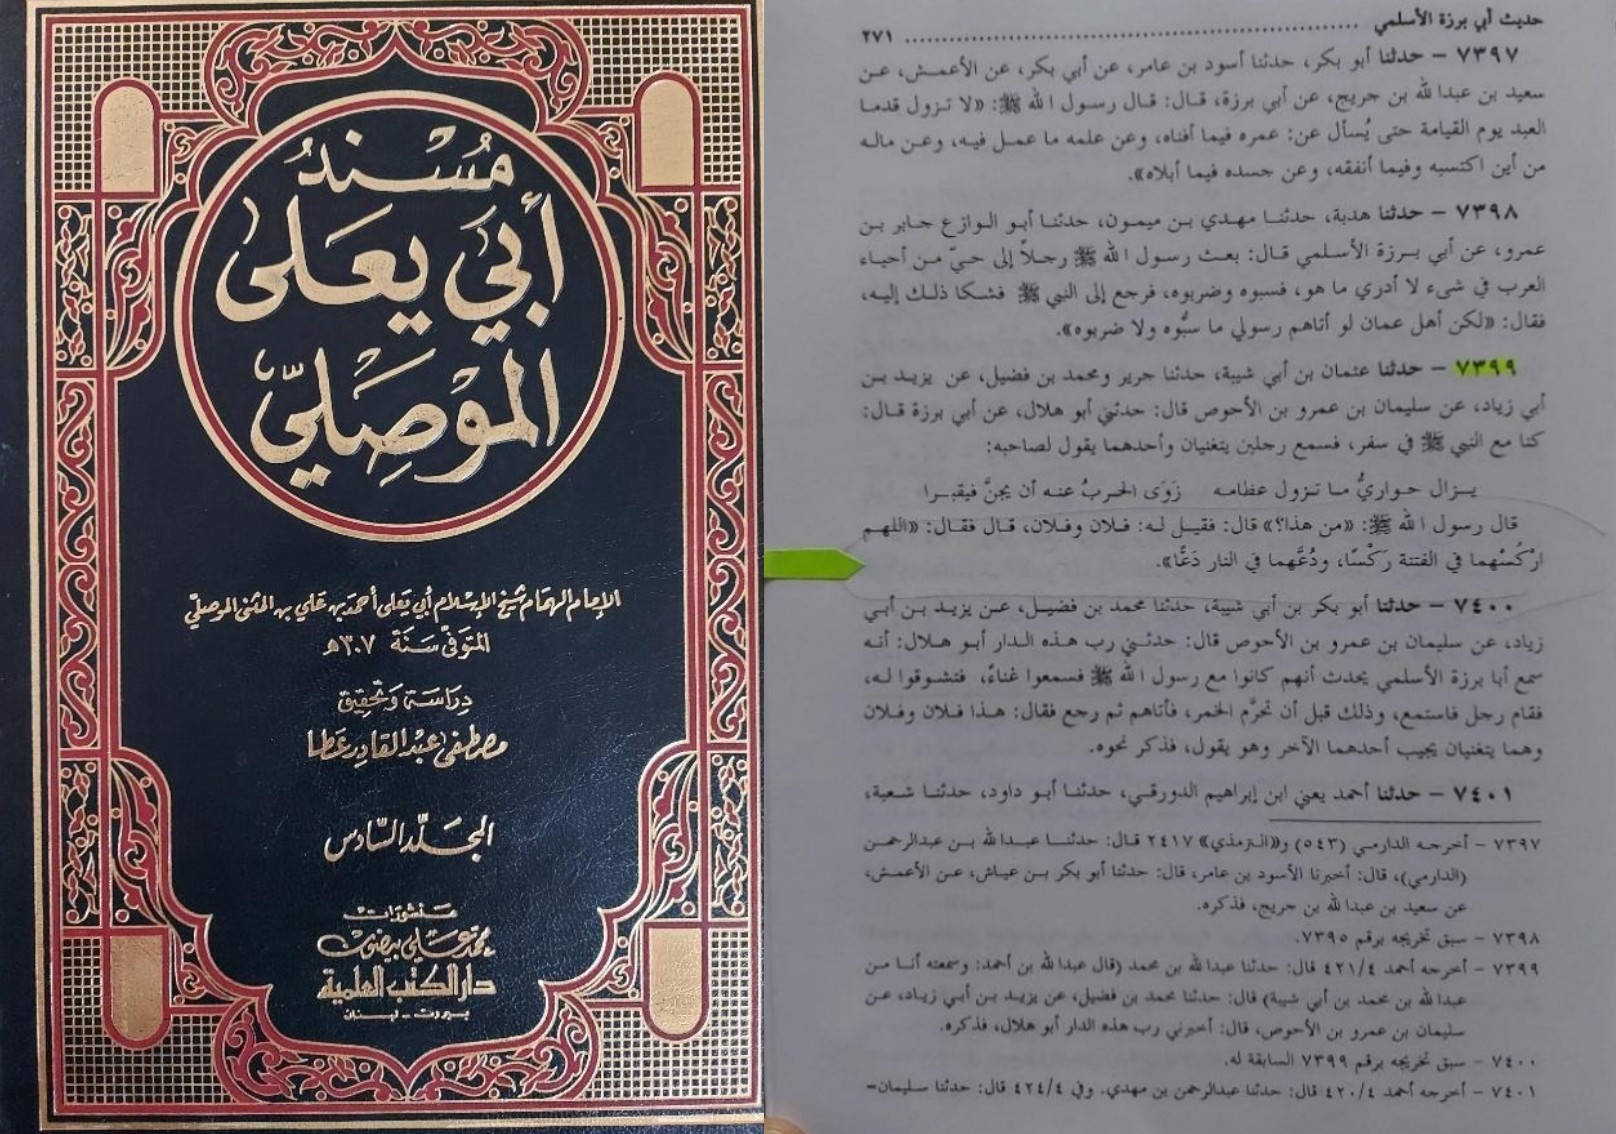 مُسْنَدُ
أَبِي يَعْلَى
المَوْصِلِيّ
الإمام الهمام شيخ الإسلام أبي يعلى أحمد بن علي بن المثنى الموصلي
المتوفى سنة ٣٠٧هـ
دراسة وتحقيق
مصطفى عبد القادر عطا
المجلد السادس
منشورات
محمد علي بيضون
دار الكتب العلمية
بيروت - لبنان
حديث أبي برزة الأسلمي ........ ٢٧١
٧٣٩٧ – حدثنا أبو بكر، حدثنا أسود بن عامر، عن أبي بكر، عن الأعمش، عن
سعيد بن عبدالله بن جريج، عن أبي برزة، قال: قال رسول الله ﷺ: «لا تزول قدما
العبد يوم القيامة حتى يُسأل عن: عمره فيما أفناه، وعن علمه ما عمل فيه، وعن ماله
من أين اكتسبه وفيما أنفقه، وعن جسده فيما أبلاه».
٧٣٩٨ – حدثنا هدبة، حدثنا مهدي بن ميمون، حدثنا أبو الوازع جابر بن
عمرو، عن أبي برزة الأسلمي قال: بعث رسول الله ﷺ رجلاً إلى حيّ من أحياء
العرب في شيء لا أدري ما هو، فسبوه وضربوه، فرجع إلى النبي ﷺ فشكا ذلك إليه،
فقال: «لكن أهل عمان لو أتاهم رسولي ما سبُّوه ولا ضربوه».
٧٣٩٩ – حدثنا عثمان بن أبي شيبة، حدثنا جرير ومحمد بن فضيل، عن يزيد بن
أبي زياد، عن سليمان بن عمرو بن الأحوص قال: حدثني أبو هلال، عن أبي برزة قال:
كنا مع النبي ﷺ في سفر، فسمع رجلين يتغنيان وأحدهما يقول لصاحبه:
يزال حواريُّ ما تزول عظامه زَوَى الحربُ عنه أن يجنَّ فيقبرا
قال رسول الله ﷺ: «من هذا؟» قال: فقيل له: فلان وفلان، قال فقال: «اللهم
ارْكُسْهما في الفتنة رَكْسًا، ودُعَّهما في النار دَعًّا».
٧٤٠٠ – حدثنا أبو بكر بن أبي شيبة، حدثنا محمد بن فضيل، عن يزيد بن أبي
زياد، عن سليمان بن عمرو بن الأحوص قال: حدثني رب هذه الدار أبو هلال: أنه
سمع أبا برزة الأسلمي يحدث أنهم كانوا مع رسول الله ﷺ فسمعوا غناءً، فتشوقوا له،
فقام رجل فاستمع، وذلك قبل أن تحرَّم الخمر، فأتاهم ثم رجع فقال: هذا فلان وفلان
وهما يتغنيان يجيب أحدهما الآخر وهو يقول، فذكر نحوه.
٧٤٠١ – حدثنا أحمد يعني ابن إبراهيم الدورقي، حدثنا أبو داود، حدثنا شعبة،
٧٣٩٧ – أخرجه الدارمي (٥٤٣) و«الترمذي» ٢٤١٧ قال: حدثنا عبدالله بن عبدالرحمن
(الدارمي)، قال: أخبرنا الأسود بن عامر، قال: حدثنا أبو بكر بن عياش، عن الأعمش،
عن سعيد بن عبدالله بن جريج، فذكره.
٧٣٩٨ – سبق تخريجه برقم ٧٣٩٥.
٧٣٩٩ – أخرجه أحمد ٤٢١/٤ قال: حدثنا عبدالله بن محمد (قال عبدالله بن أحمد: وسمعته أنا من
عبدالله بن محمد بن أبي شيبة) قال: حدثنا محمد بن فضيل، عن يزيد بن أبي زياد، عن
سليمان بن عمرو بن الأحوص، قال: أخبرني رب هذه الدار أبو هلال، فذكره.
٧٤٠٠ – سبق تخريجه برقم ٧٣٩٩ السابقة له.
٧٤٠١ – أخرجه أحمد ٤٢٠/٤ قال: حدثنا عبدالرحمن بن مهدي. وفي ٤٢٤/٤ قال: حدثنا سليمان-